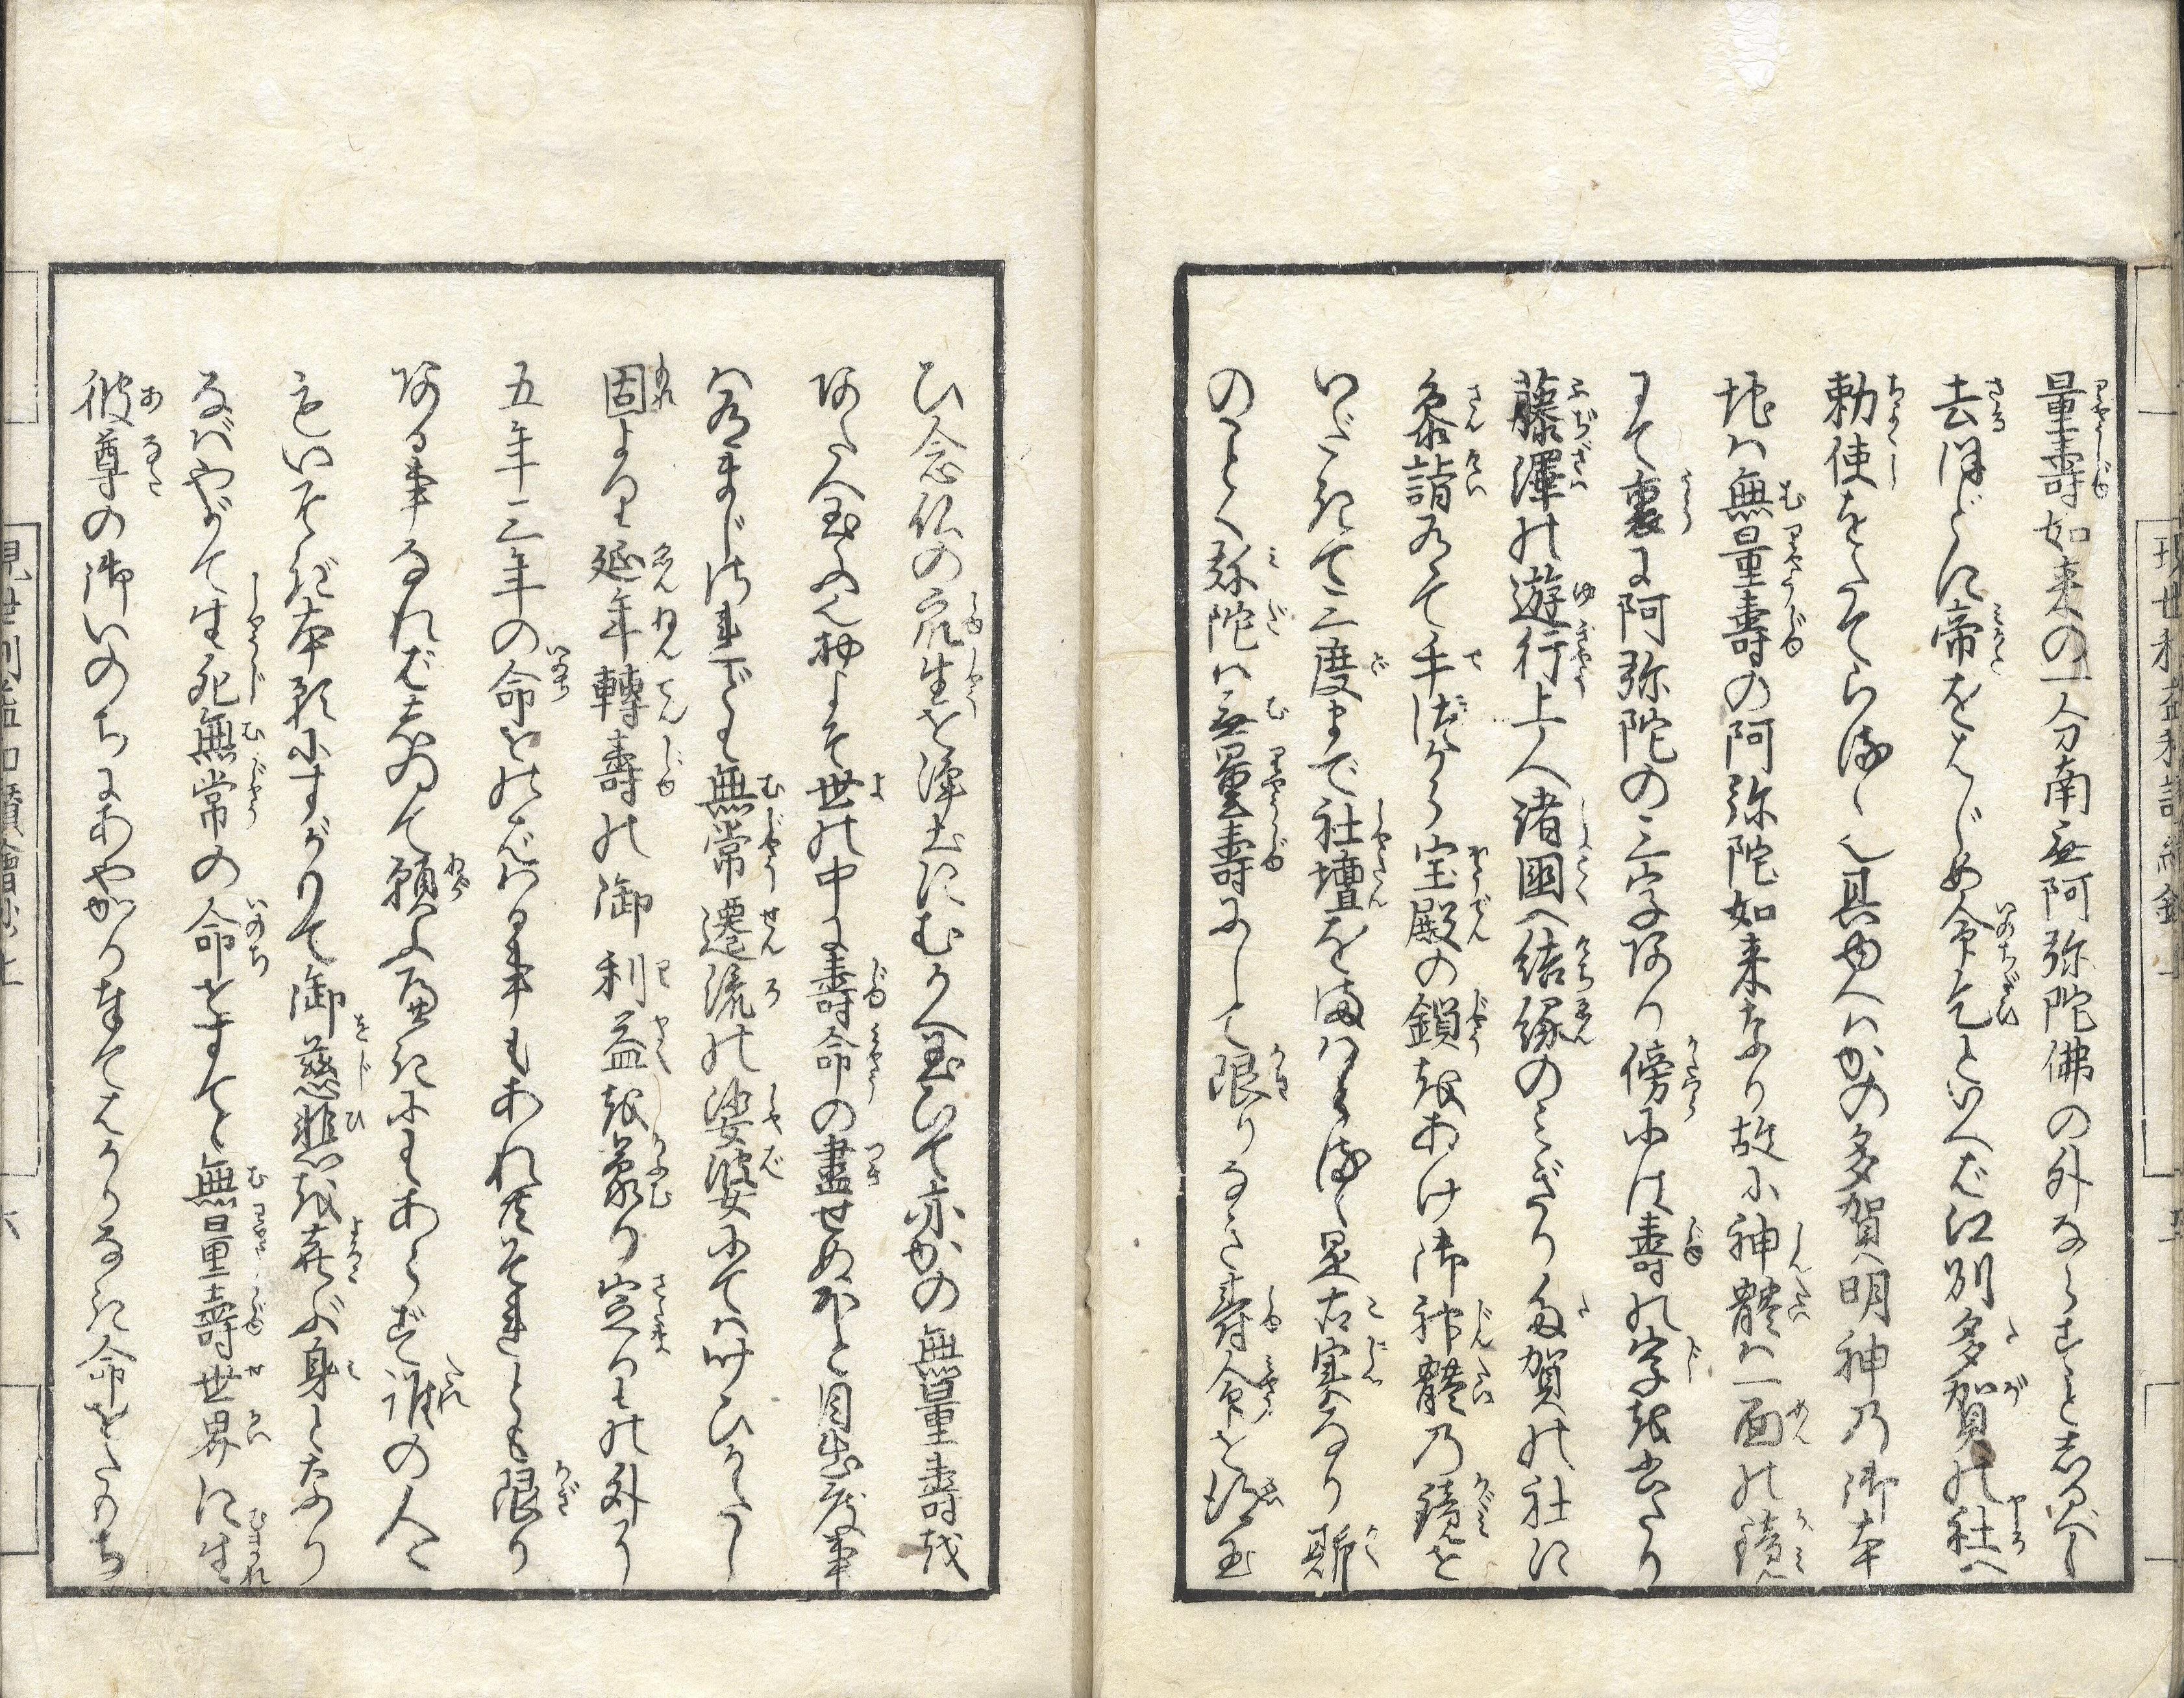 量壽如来の一分南無阿弥陀佛の外ならずと志るべし
去ほどに帝をはじめ命乞といへば江列多賀の社へ
勅使をたてらるゝ也具ゆへはかの多賀明神乃御本
地は無量壽の阿弥陀如来なり故に神體は一面の鏡
にて裏に阿弥陀の三字あり傍には壽の字を書たり
藤澤の遊行上人諸國へ結縁のみぎり多賀の社に
参詣有て手づから宝殿の鎖をあけ御神體乃鏡を
いだきて三度まで社壇をまはらるゝ是古実なり斯
のごとく弥陀は無量壽にして限りなき壽命を得玉
ひ念仏の衆生を浄土にむかへ玉ひて亦かの無量壽を
あたへ玉ふ也抑よそ世の中に壽命の盡せぬほど目出度事
は有まじけれども無常遷流の娑婆にてはかひがたし
固より延年轉壽の御利益を蒙り定りの外に
五年三年の命をのばはる事もあれ共それとも限り
ある事なれば志ゐて願ふべきにもあらず誰の人々
もいそぎ本願にすがりて御慈悲を喜ぶ身となり
なばやがて生死無常の命をすてゝ無量壽世界に生
彼尊の御いのちにあやかり奉てはかりなき命をたもち